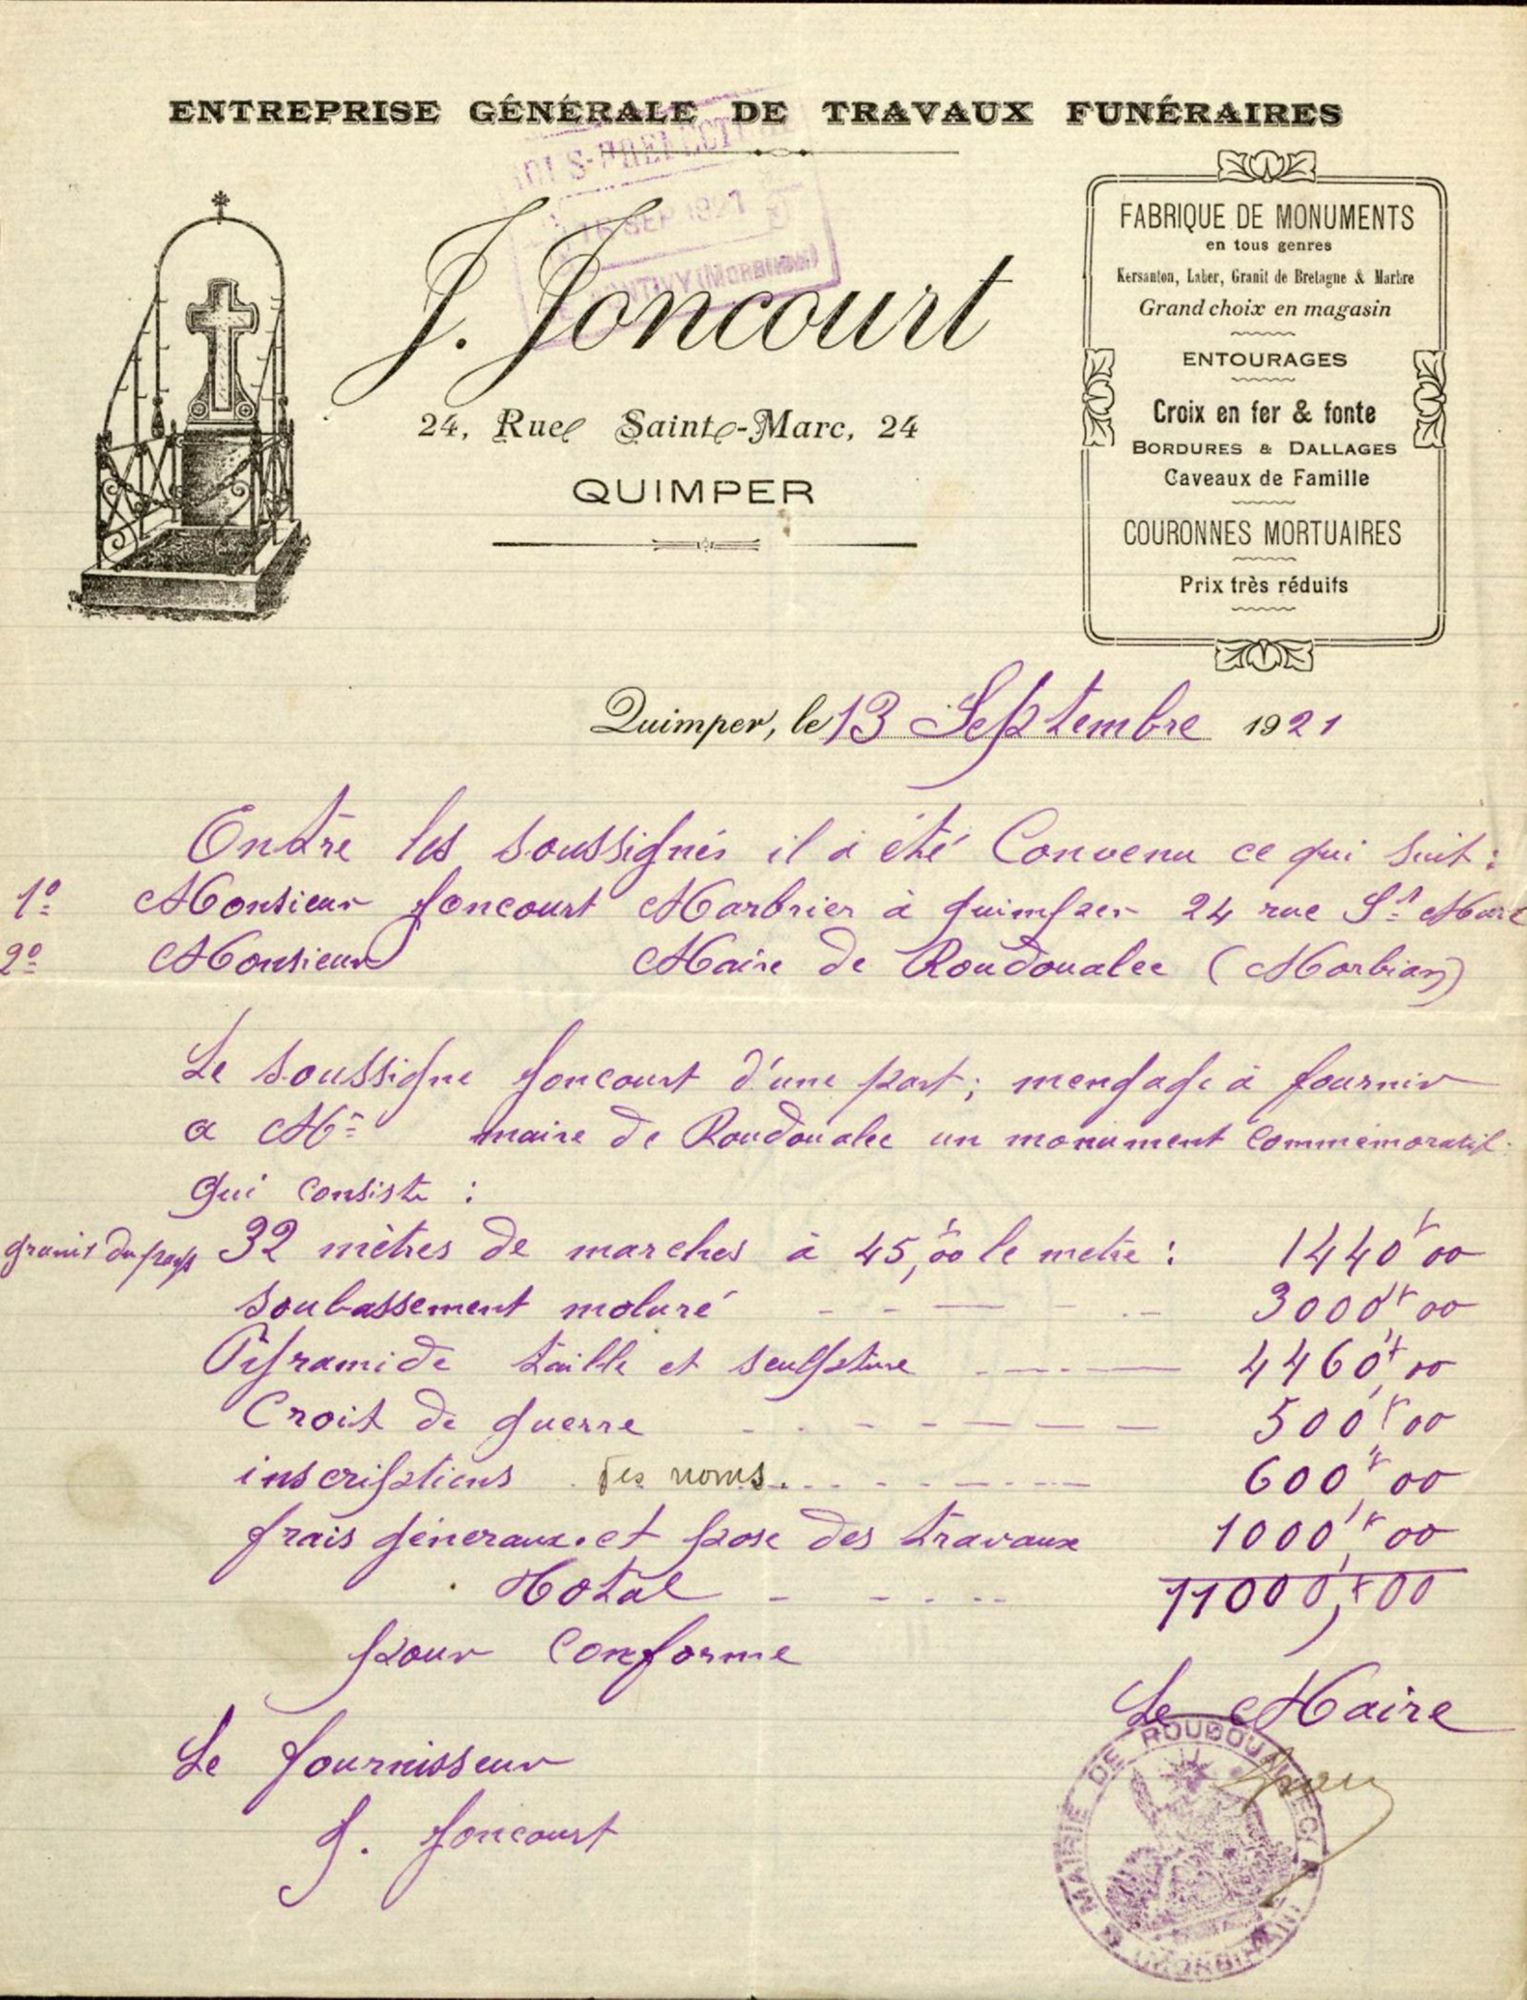 ENTREPRISE GÉNÉRALE DE TRAVAUX FUNÉRAIRES
SOUS-PRÉFECTURE
16 SEP 1921
PONTIVY (MORBIHAN)
J. Joncourt
24, Rue Saint-Marc, 24
QUIMPER
FABRIQUE DE MONUMENTS
en tous genres
Kersanton, Laber, Granit de Bretagne & Marbre
Grand choix en magasin
ENTOURAGES
Croix en fer & fonte
BORDURES & DALLAGES
Caveaux de Famille
COURONNES MORTUAIRES
Prix très réduits
Quimper, le 13 Septembre 1921
Entre les soussignés il à été Convenu ce qui suit :
1º Monsieur Joncourt Marbrier à quimper 24 rue St Marc
2º Monsieur Maire de Roudoualec (Morbian)
Le soussigne Joncourt d'une part ; mengage à fournir
a Mr maire de Roudoualec un monument Commémoratif
qui consiste :
granit du pays 32 mètres de marches à 45,f00 le metre : 1440f00
soubassement moluré 3000,f00
Piframide taille et sculpture 4460,f00
Croix de guerre 500,f00
inscriptions des noms. 600,f00
frais géneraux. et pose des travaux 1000,f00
Total 11000,f00
pour Conforme
Le Maire
Le fournisseur
J. Joncourt
MAIRIE DE ROUDOUALLEC
(MORBIHAN)